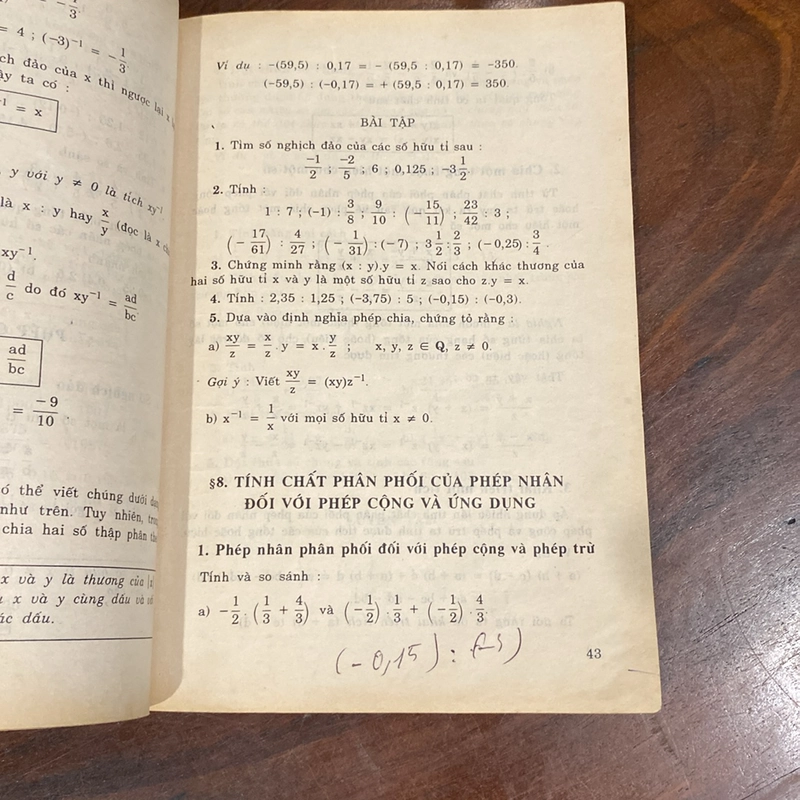 -1/3
= 4 ; (-3)⁻¹ = -1/3
ch đảo của x thì ngược lại x
ày ta có :
⁻¹ = x
y với y ≠ 0 là tích xy⁻¹
là x : y hay x/y (đọc là x
xy⁻¹.
d/c do đó xy⁻¹ = ad/bc
ad/bc
= -9/10.
ó thể viết chúng dưới dạng
như trên. Tuy nhiên,
chia hai số thập phân
x và y là thương của |x|
x và y cùng dấu và
ác dấu.
Ví dụ : -(59,5) : 0,17 = - (59,5 : 0,17) = -350.
(-59,5) : (-0,17) = + (59,5 : 0,17) = 350.
BÀI TẬP
1. Tìm số nghịch đảo của các số hữu tỉ sau :
-1/2 ; -2/5 ; 6 ; 0,125 ; -3 1/2.
2. Tính :
1 : 7 ; (-1) : 3/8 ; 9/10 : (-15/11) ; 23/42 : 3 ;
(-17/61) : 4/27 ; (-1/31) : (-7) ; 3 1/2 : 2/3 ; (-0,25) : 3/4.
3. Chứng minh rằng (x : y).y = x. Nói cách khác thương của
hai số hữu tỉ x và y là một số hữu tỉ z sao cho z.y = x.
4. Tính : 2,35 : 1,25 ; (-3,75) : 5 ; (-0,15) : (-0,3).
5. Dựa vào định nghĩa phép chia, chứng tỏ rằng :
a) xy/z = x/z . y = x . y/z ; x, y, z ∈ Q, z ≠ 0.
Gợi ý : Viết xy/z = (xy)z⁻¹.
b) x⁻¹ = 1/x với mọi số hữu tỉ x ≠ 0.
§8. TÍNH CHẤT PHÂN PHỐI CỦA PHÉP NHÂN
ĐỐI VỚI PHÉP CỘNG VÀ ỨNG DỤNG
1. Phép nhân phân phối đối với phép cộng và phép trừ
Tính và so sánh :
a) -1/2 . (1/3 + 4/3) và (-1/2) . 1/3 + (-1/2) . 4/3.
(-0,15) :
43